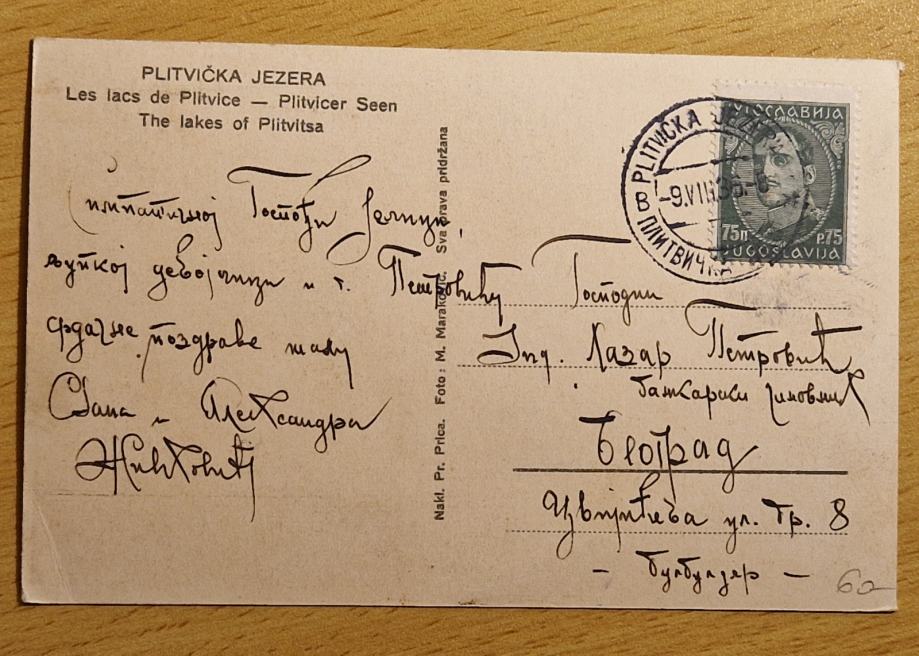 PLITVIČKA JEZERA
Les lacs de Plitvice — Plitvicer Seen
The lakes of Plitvitsa
Симпатичној Госпођи Јелици,
љупкој девојчици и г. Петровићу
срдачне поздраве шаљу
и Александра
Живковић
Nakl. Pr. Prica. Foto: M. Maraković. Sva prava pridržana
PLITVIČKA JEZERA
-9.VIII.36-8
B
ПЛИТВИЧКА
ЈУГОСЛАВИЈА
75П P.75
JUGOSLAVIJA
Господин
Инд. Лазар Петровић
банкарски чиновник
Београд
Цвијићева ул. бр. 8
— Булбулдер —
60